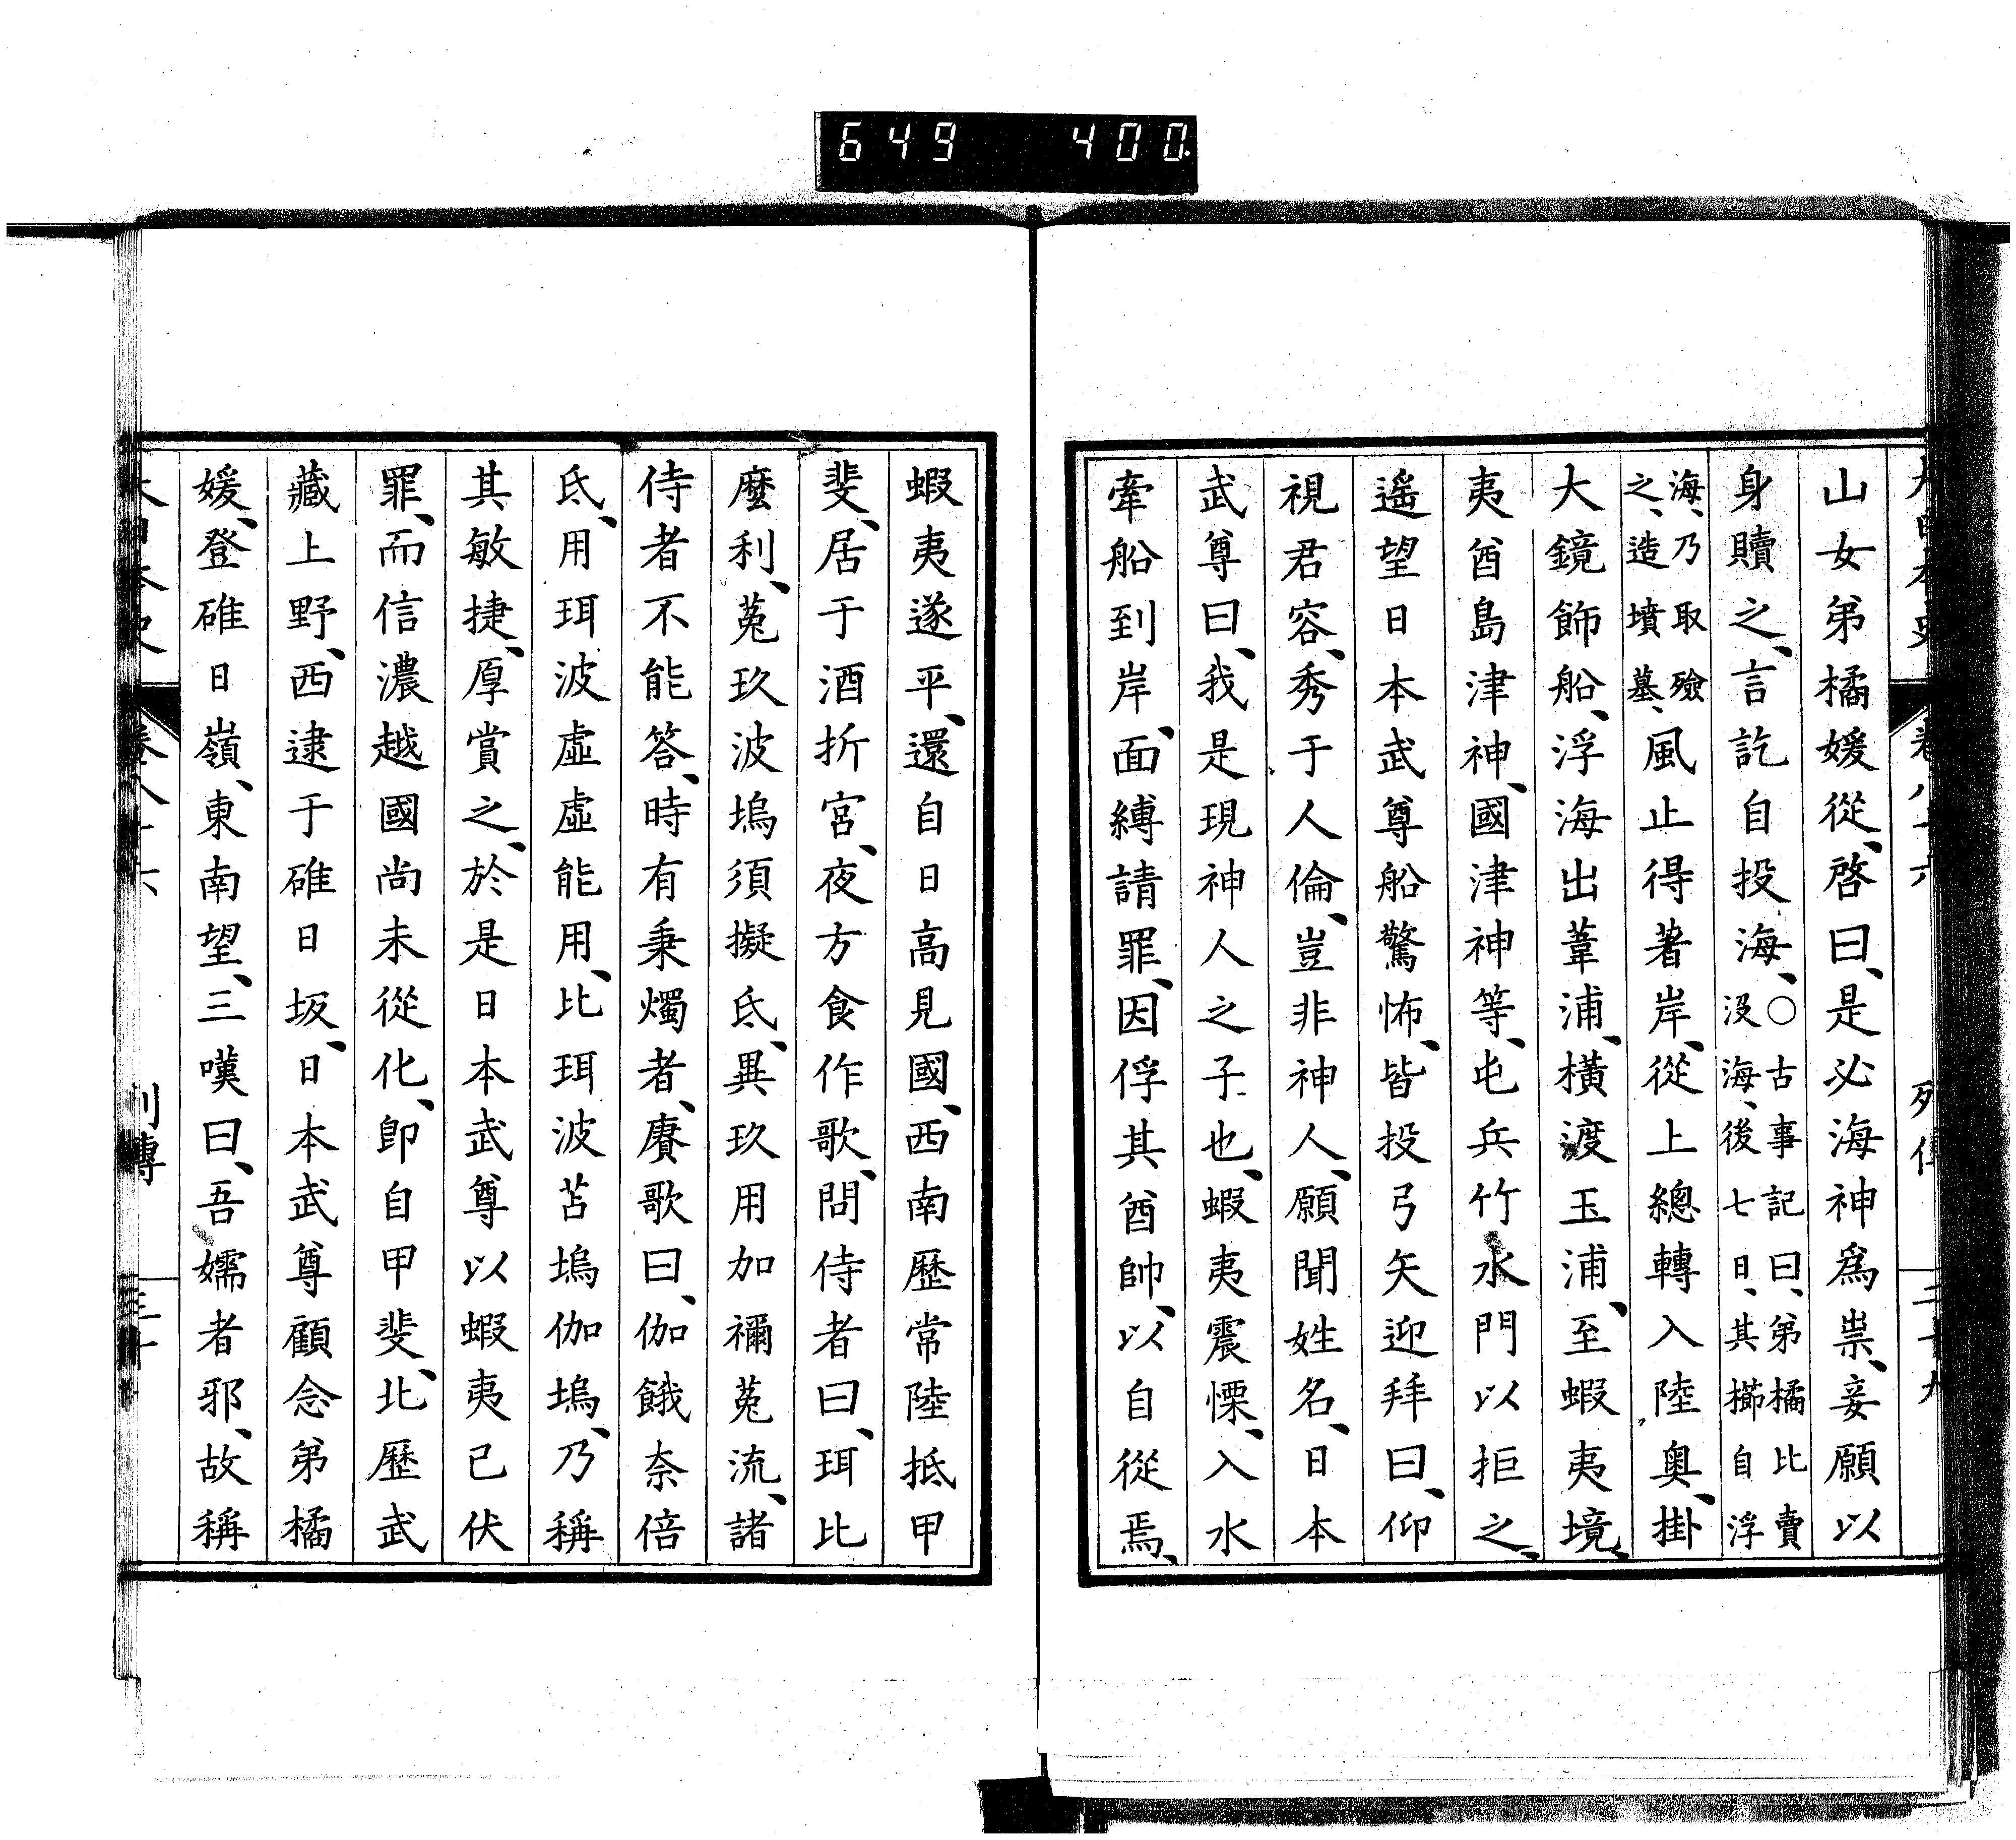 649 400
山女弟橘媛從、啓曰、是必海神爲祟、妾願以
身贖之、言訖自投海、○古事記曰、弟橘比賣
沒海、後七日、其櫛自浮
海、乃取殮
之、造墳墓、風止得著岸、從上總轉入陸奧、掛
大鏡飾船、浮海出葦浦、橫渡玉浦、至蝦夷境、
夷酋島津神、國津神等、屯兵竹水門以拒之、
遙望日本武尊船驚怖、皆投弓矢迎拜曰、仰
視君容、秀于人倫、豈非神人、願聞姓名、日本
武尊曰、我是現神人之子也、蝦夷震慄、入水
牽船到岸、面縛請罪、因俘其酋帥、以自從焉、
蝦夷遂平、還自日高見國、西南歷常陸抵甲
斐、居于酒折宮、夜方食作歌、問侍者曰、珥比
麼利、菟玖波塢須擬氐、異玖用加禰菟流、諸
侍者不能答、時有秉燭者、賡歌曰、伽餓奈倍
氐、用珥波虛虛能用、比珥波苫塢伽塢、乃稱
其敏捷、厚賞之、於是日本武尊以蝦夷已伏
罪、而信濃越國尚未從化、卽自甲斐、北歷武
藏上野、西逮于碓日坂、日本武尊顧念弟橘
媛、登碓日嶺、東南望、三嘆曰、吾嬬者邪、故稱